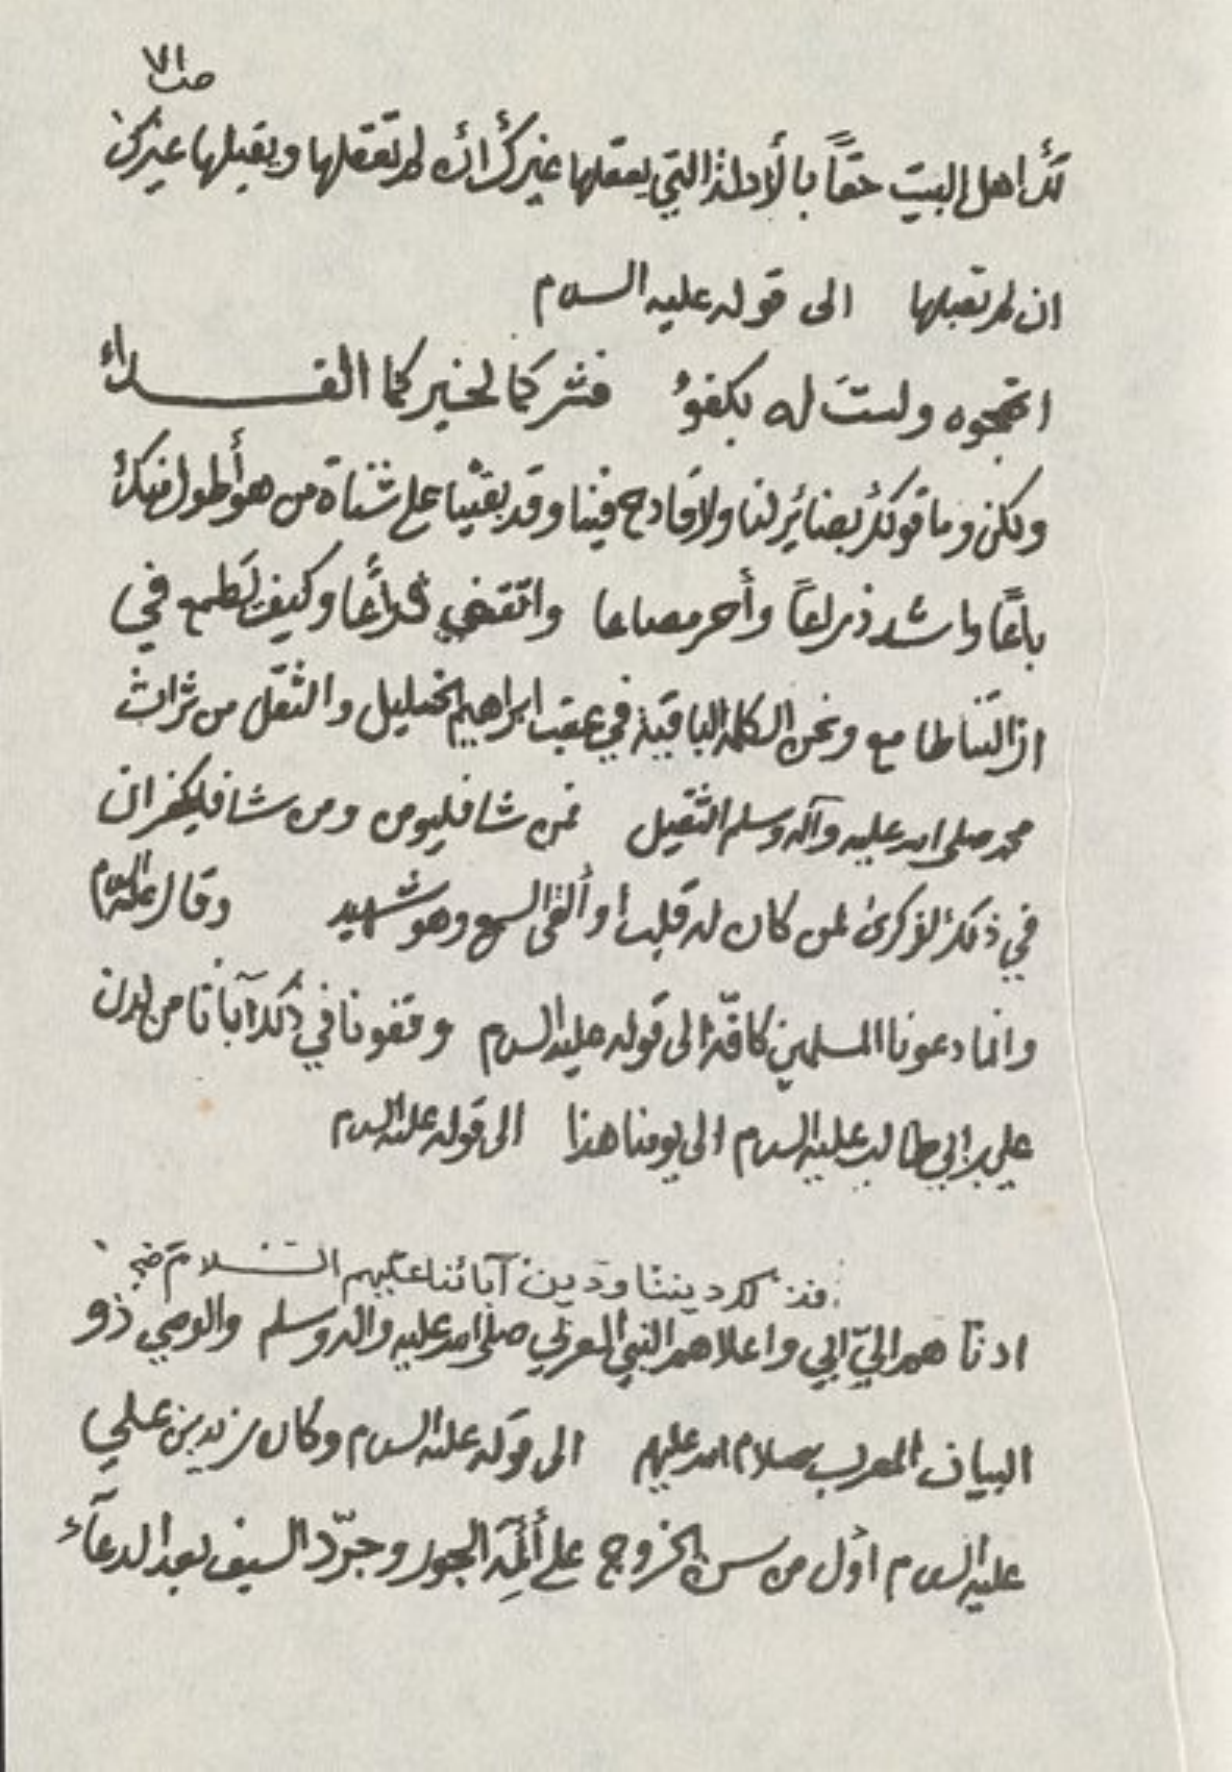 اهل البيت حقاً بالأدلة التي يعقلها غيرك ان لم تعقلها ويقبلها غيرك
ان لم تقبلها الى قوله عليه السلام
اتهجوه ولست له بكفؤ فشركما لخيركما الفـــداء
ولكن وما قولك بضائر لنا ولا قادح فينا وقد بقينا على شناة من هو أطول منك
باعاً واشد ذراعاً وأحر مصاعا وكيف تطمع في
ازالتنا طامع ونحن الكلمة الباقية في عقب ابراهيم الخليل والثقل من تراث
محمد صلى الله عليه وآله وسلم الثقيل فمن شا فليومن ومن شا فليكفر ان
في ذلك لذكرى لمن كان له قلب أو ألقى السمع وهو شهيد وقال عليه السلام
وانما دعونا المسلمين كافة الى قوله عليه السلام وقفونا في ذلك آبانا من لدن
علي بن ابي طالب عليه السلام الى يومنا هذا الى قوله عليه السلام
ديننا ودين آبائنا عليهم الســلام
ادناهم اليّ ابي واعلاهم النبي العربي صلى الله عليه واله وسلم والوصي ذو
البيان المعرب سلام الله عليهم الى قوله عليه السلام وكان زيد بن علي
عليه السلام اوّل من سن الخروج على أئمة الجور وجرّد السيف بعد الدعآء